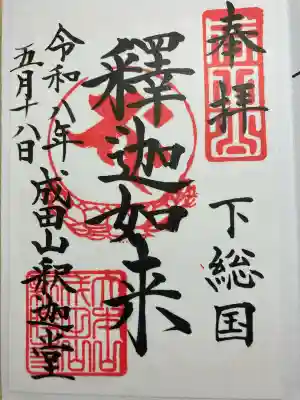 奉拝
下総国
釋迦如来
令和八年五月十八日
成田山釈迦堂